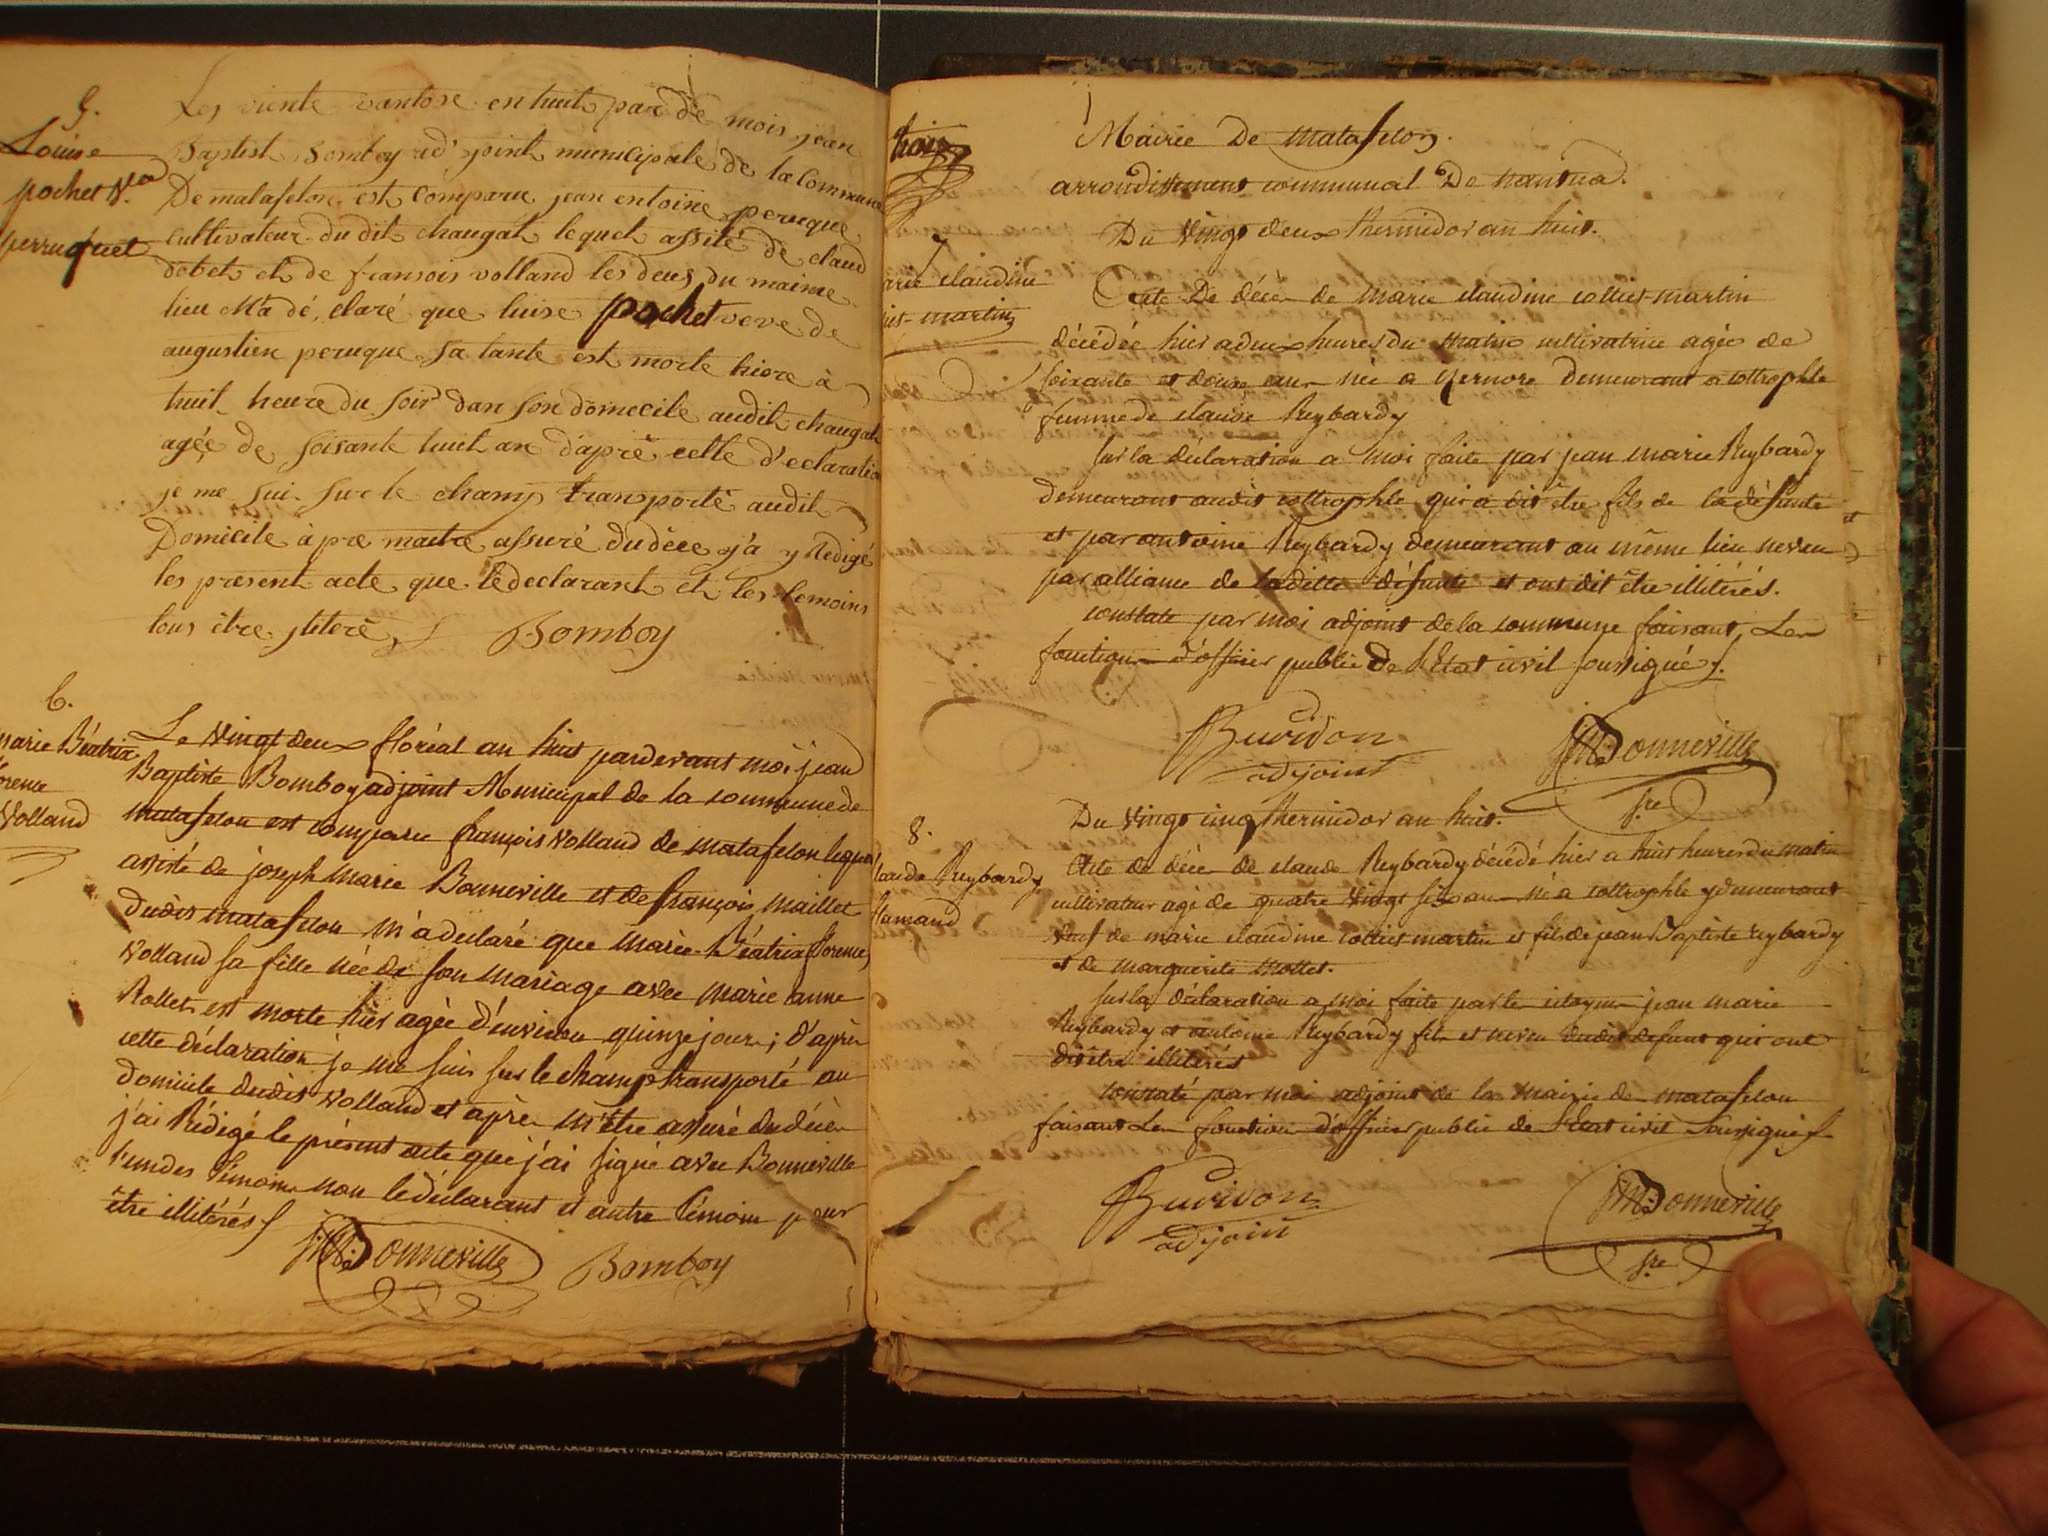 5.
Louise
pochet Ve
perruquet
Les viente vantose en huit par de mois jean
Baptist Bomboy ad'joint municipale de la Commune
De matafelon est comparu jean entoine peruque
cultivateur du dit chaugat lequel assité de claud
debet et de fransois volland les deus du maime
lieu Ma dé,claré que luise pochet veve de
augustien peruque sa tante est morte hiere à
huit heure du soir dan son domecile audit chaugat
agée de soisante huit an d'aprè cette d'eclaration
je me sui sur le champ transporté audit
Domicile à pre maitre assuré du dèce j'a y Redigé
les present acte que le declarant et les temoins
tous être iliterè Bomboy
6.
marie Béatrix
florence
Volland
Le vingt deux floréal an huit pardevant moi jean
Baptiste Bomboy adjoint Municipal de la commune de
matafelon est comparu françois volland de matafelon lequel
assisté de joseph marie Bonneville et de françois maillet
dudit matafelon m'a déclaré que marie Béatrix florence
volland sa fille née de son mariage avec marie anne
Rollet est morte hier agée d'environ quinze jours ; d'après
cette déclaration je me suis sur le champ transporté au
domicile dudit volland et après m'être assuré du décès
j'ai Rédigé le présent acte que j'ai signé avec Bonneville
l'un des témoins non le déclarant et autre témoin pour
être illitérés
JM Bonneville Bomboy
trois
Mairie De matafelon.
arrondissement communal De nantua.
Du vingt deux thermidor an huit.
7
marie claudine
martin
Acte De décès de marie claudine colliet-martin
décédée hier a deux heures du matin cultivatrice agée de
soixante et douze ans née a Yernore demeurant a cottrophle
femme de claude Reybardy
sur la déclaration a moi faite par jean marie Reybardy
demeurant audit cottrophle qui a dit être fils de la défunte
et par antoine Reybardy demeurant au même lieu neveu
par alliance de laditte défunte et ont dit être illitérés.
constaté par moi adjoint de la commune faisant Les
fonctions d'officier public de l'Etat civil soussigné.
Buridon
adjoint
JM Bonneville
sre
Du vingt cinq thermidor an huit.
8.
claude Reybardy
flamand
Acte de décès de claude Reybardy décédé hier a huit heures du matin
cultivateur agé de quatre vingt six ans né a cottrophle y demeurant
veuf de marie claudine colliet martin et fils de jean Baptiste reybardy
et de marguerite mottet.
sur la déclaration a moi faite par le citoyens jean marie
Reybardy et antoine Reybardy fils et neveu dudit defunt qui ont
dit être illitérés
constaté par moi adjoint de la mairie de matafelon
faisant Les fonctions d'officier public de l'Etat civil soussigné
Buridon
adjoint
JM Bonneville
sre